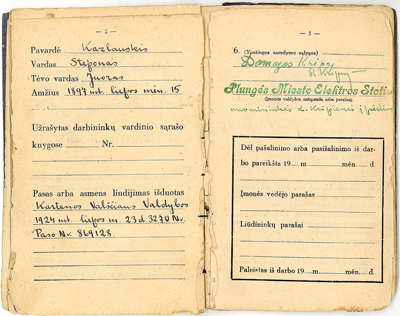 — 2 —
Pavardė Kazlauskis
Vardas Steponas
Tėvo vardas Juozas
Amžius 1897 mt. liepos mėn. 15
Užrašytas darbininkų vardinio sąrašo
knygose Nr.
Pasas arba asmens liudijimas išduotas
Kartenos Valsčiaus Valdybos
1924 mt. liepos m. 23 d 3270 Nr.
Paso Nr. 869128.
— 3 —
6. (Ypatingos samdymo sąlygos)
Plungės Miesto Elektros Stoti
(Įmonės valdybos antspaudu arba parašas).
Dėl pašalinimo arba pasišalinimo iš dar-
bo pareikšta 19 m. mėn. d.
Įmonės vedėjo parašas
Liūdininkų parašai
Paleistas iš darbo 19 m. mėn. d.